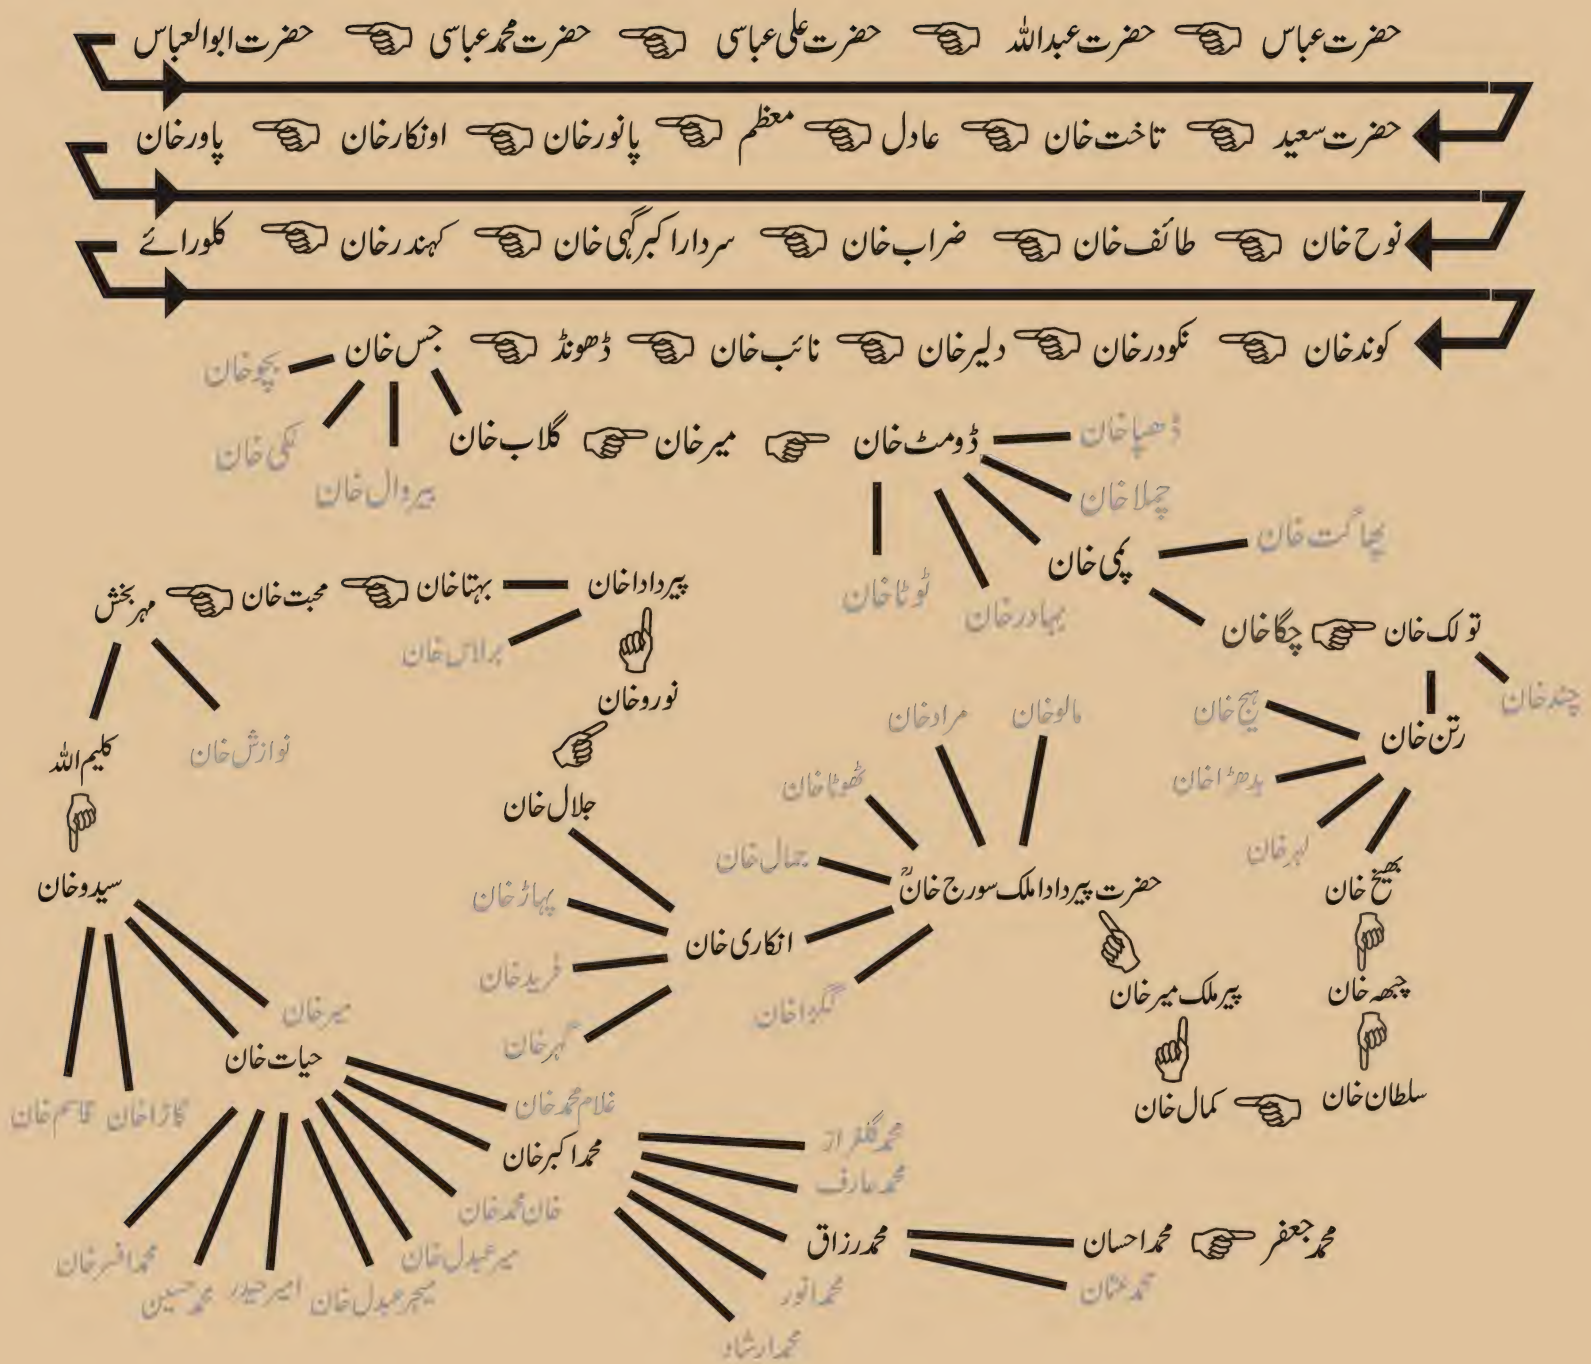 حضرت عباس حضرت عبداللہ حضرت علی عباسی حضرت محمد عباسی حضرت ابوالعباس
حضرت سعید تاخت خان عادل معظم پانور خان اونکار خان پاور خان
نوح خان طائف خان ضراب خان سردار اکبر گہی خان کہندر خان کلورائے
کوند خان نکودر خان دلیر خان نائب خان ڈھونڈ جس خان
بچو خان
لکی خان
بیروال خان
گلاب خان میر خان ڈومٹ خان
ڈھپا خان
چملا خان
پمی خان
بہادر خان
ٹوٹا خان
بھاگت خان
چگا خان تولک خان
چند خان
رتن خان
بیج خان
بدھڑا خان
لہر خان
بھیخ خان
چبھہ خان
سلطان خان
کمال خان
پیر ملک میر خان
حضرت پیر دادا ملک سورج خانؒ
مالو خان
مراد خان
ٹھوٹا خان
جمال خان
انکاری خان
جلال خان
پہاڑ خان
فرید خان
گہر خان
نورو خان
پیر دادا خان
بہتا خان محبت خان مہر بخش
برلاس خان
نوازش خان
کلیم اللہ
سیدو خان
میر خان
حیات خان
گاڑا خان
قاسم خان
غلام محمد خان
محمد اکبر خان
خان محمد خان
میر عبدل خان
میجر عبدل خان
امیر حیدر
محمد حسین
محمد افسر خان
محمد گلفراز
محمد عارف
محمد رزاق
محمد انور
محمد ارشاد
محمد احسان محمد جعفر
محمد عثمان